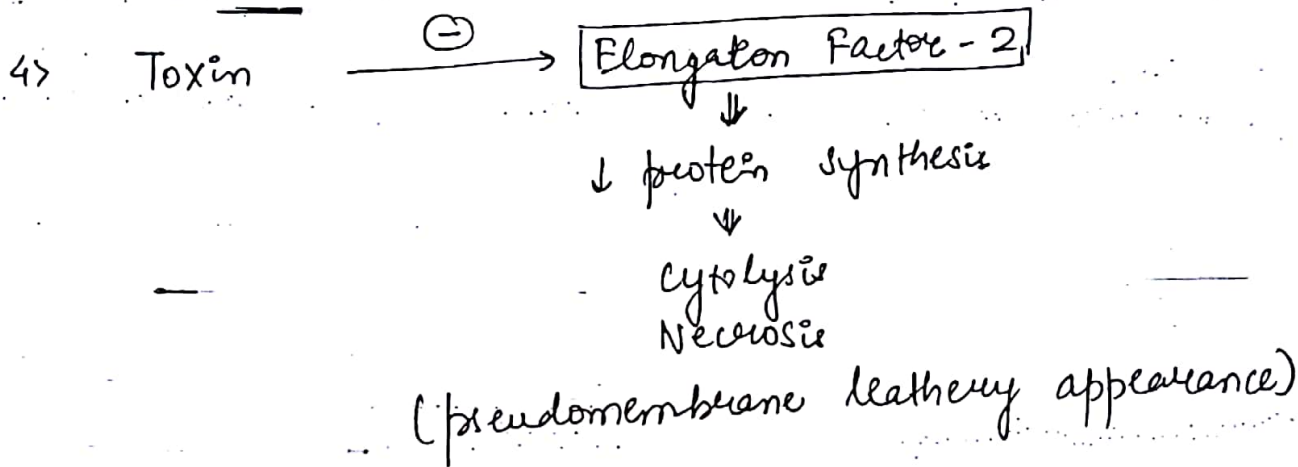 4> Toxin ⊖ → Elongaton Factor - 2
⇓
↓ protein synthesis
⇓
Cytolysis
Necrosis
(pseudomembrane leathery appearance)